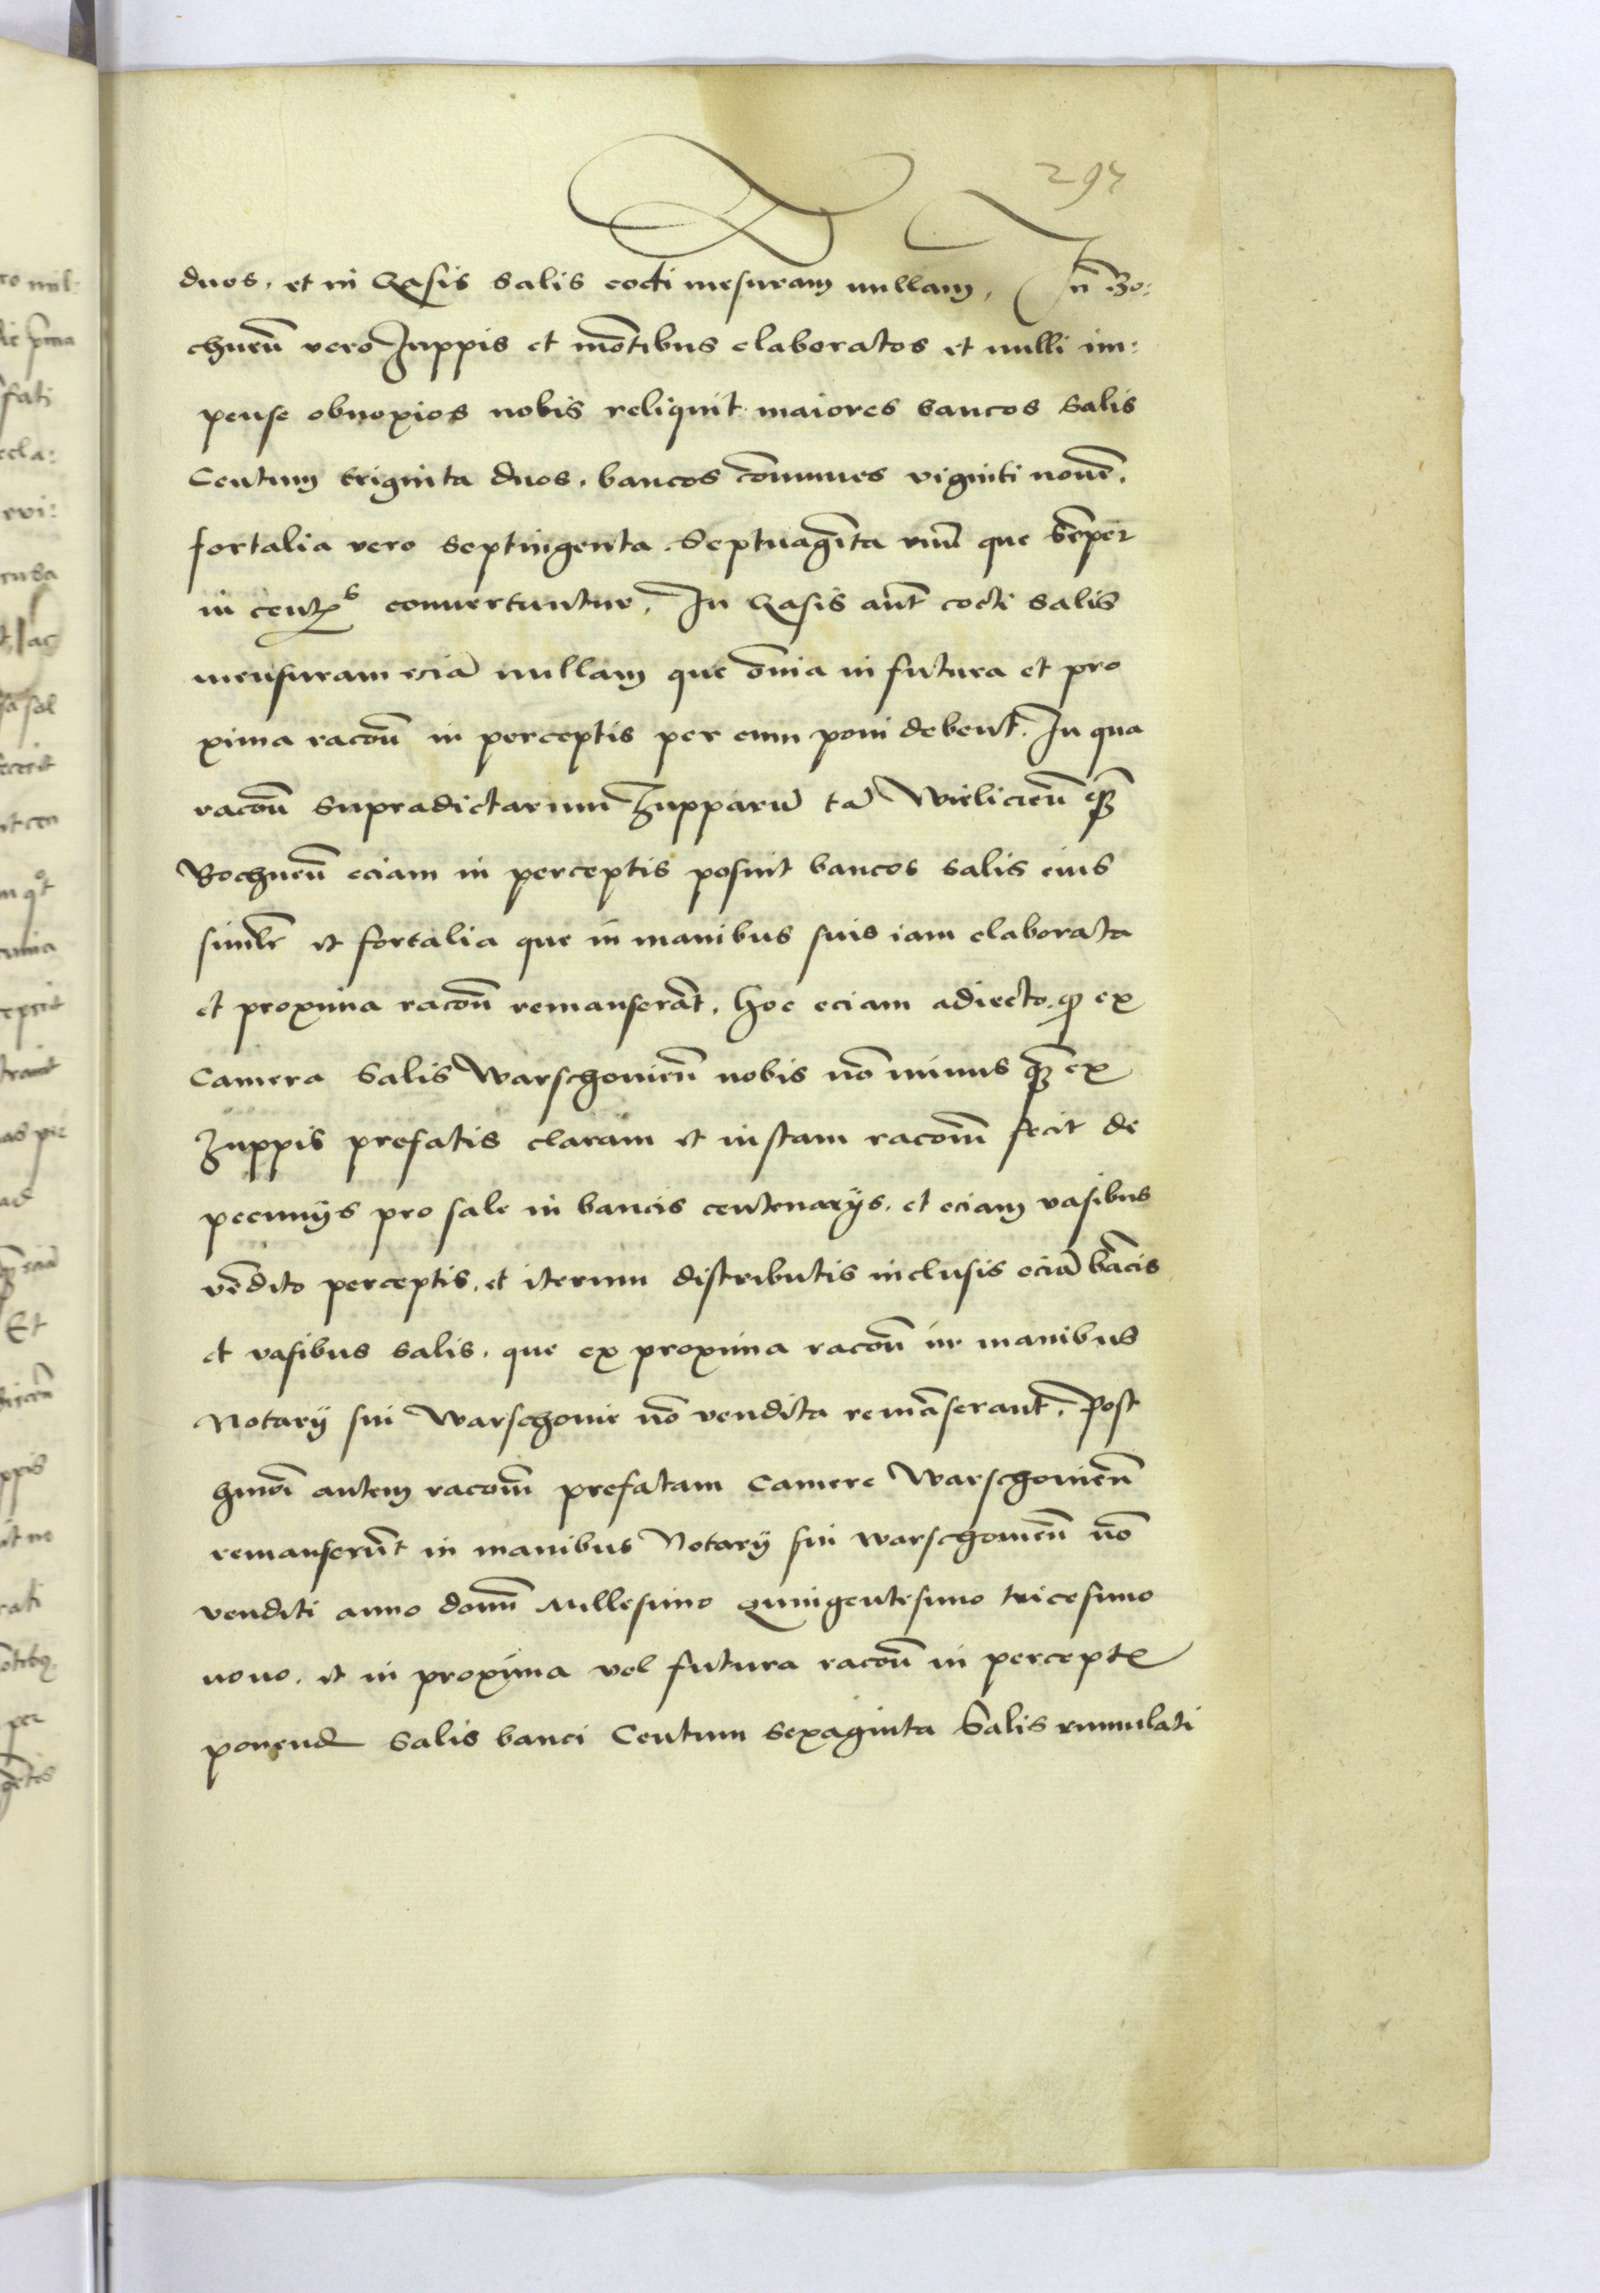 297
duos, et in Vasis salis cocti mesuram nullam, In Bo:
chneñ vero Zuppis et mōtibus elaboratos et nulli im:
pense obnoxios nobis reliquit maiores bancos salis
Centum triginta duos, bancos cōmunes viginti nouē,
fortalia vero septingenta Septuagīta vnū que sēper
in conuertuntur, In Vasis aūt cocti salis
mensuram eciā nullam que ōnia in futura et pro
xima racoñ in perceptis per eum poni debent. In qua
racoñ supradictarum Zupparū tā Wielicieñ qȝ̄
Bochneñ eciam in perceptis posuit bancos salis eius
similr̄ et fortalia que in manibus suis iam elaborata
et proxima racoñ remanserāt, hoc eciam adiecto, ꝙ ex
Camera Salis Warschouieñ nobis nō minus qȝ̄ ex
Zuppis prefatis claram et iustam racoñm fecit de
pecunijs pro sale in bancis centenarijs, et eciam vasibus
vēdito perceptis, et iterum distributis inclusis eciā bācis
et vasibus salis, que ex proxima racoñ in manibus
Notarij sui Warschouie nō vendita remāserant, Post
hmōi autem racoñm prefatam Camere Warschouieñ
remanserūt in manibus Notarij sui warschouieñ nō
venditi anno domī Millesimo Quingentesimo tricesimo
nono, et in proxima vel futura racoñ in perceptꝭ
ponend Salis banci Centum sexaginta Salis cumulati